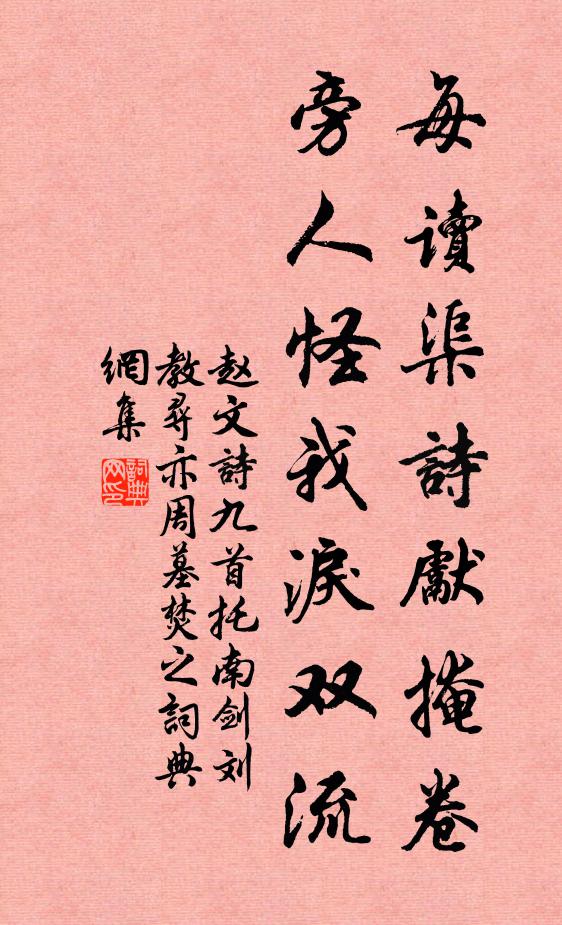 每讀渠詩獻掩卷
旁人怪我淚双流
赵文詩九首托南剑刘
教尋亦周墓焚之詞典
網集
詞典網印